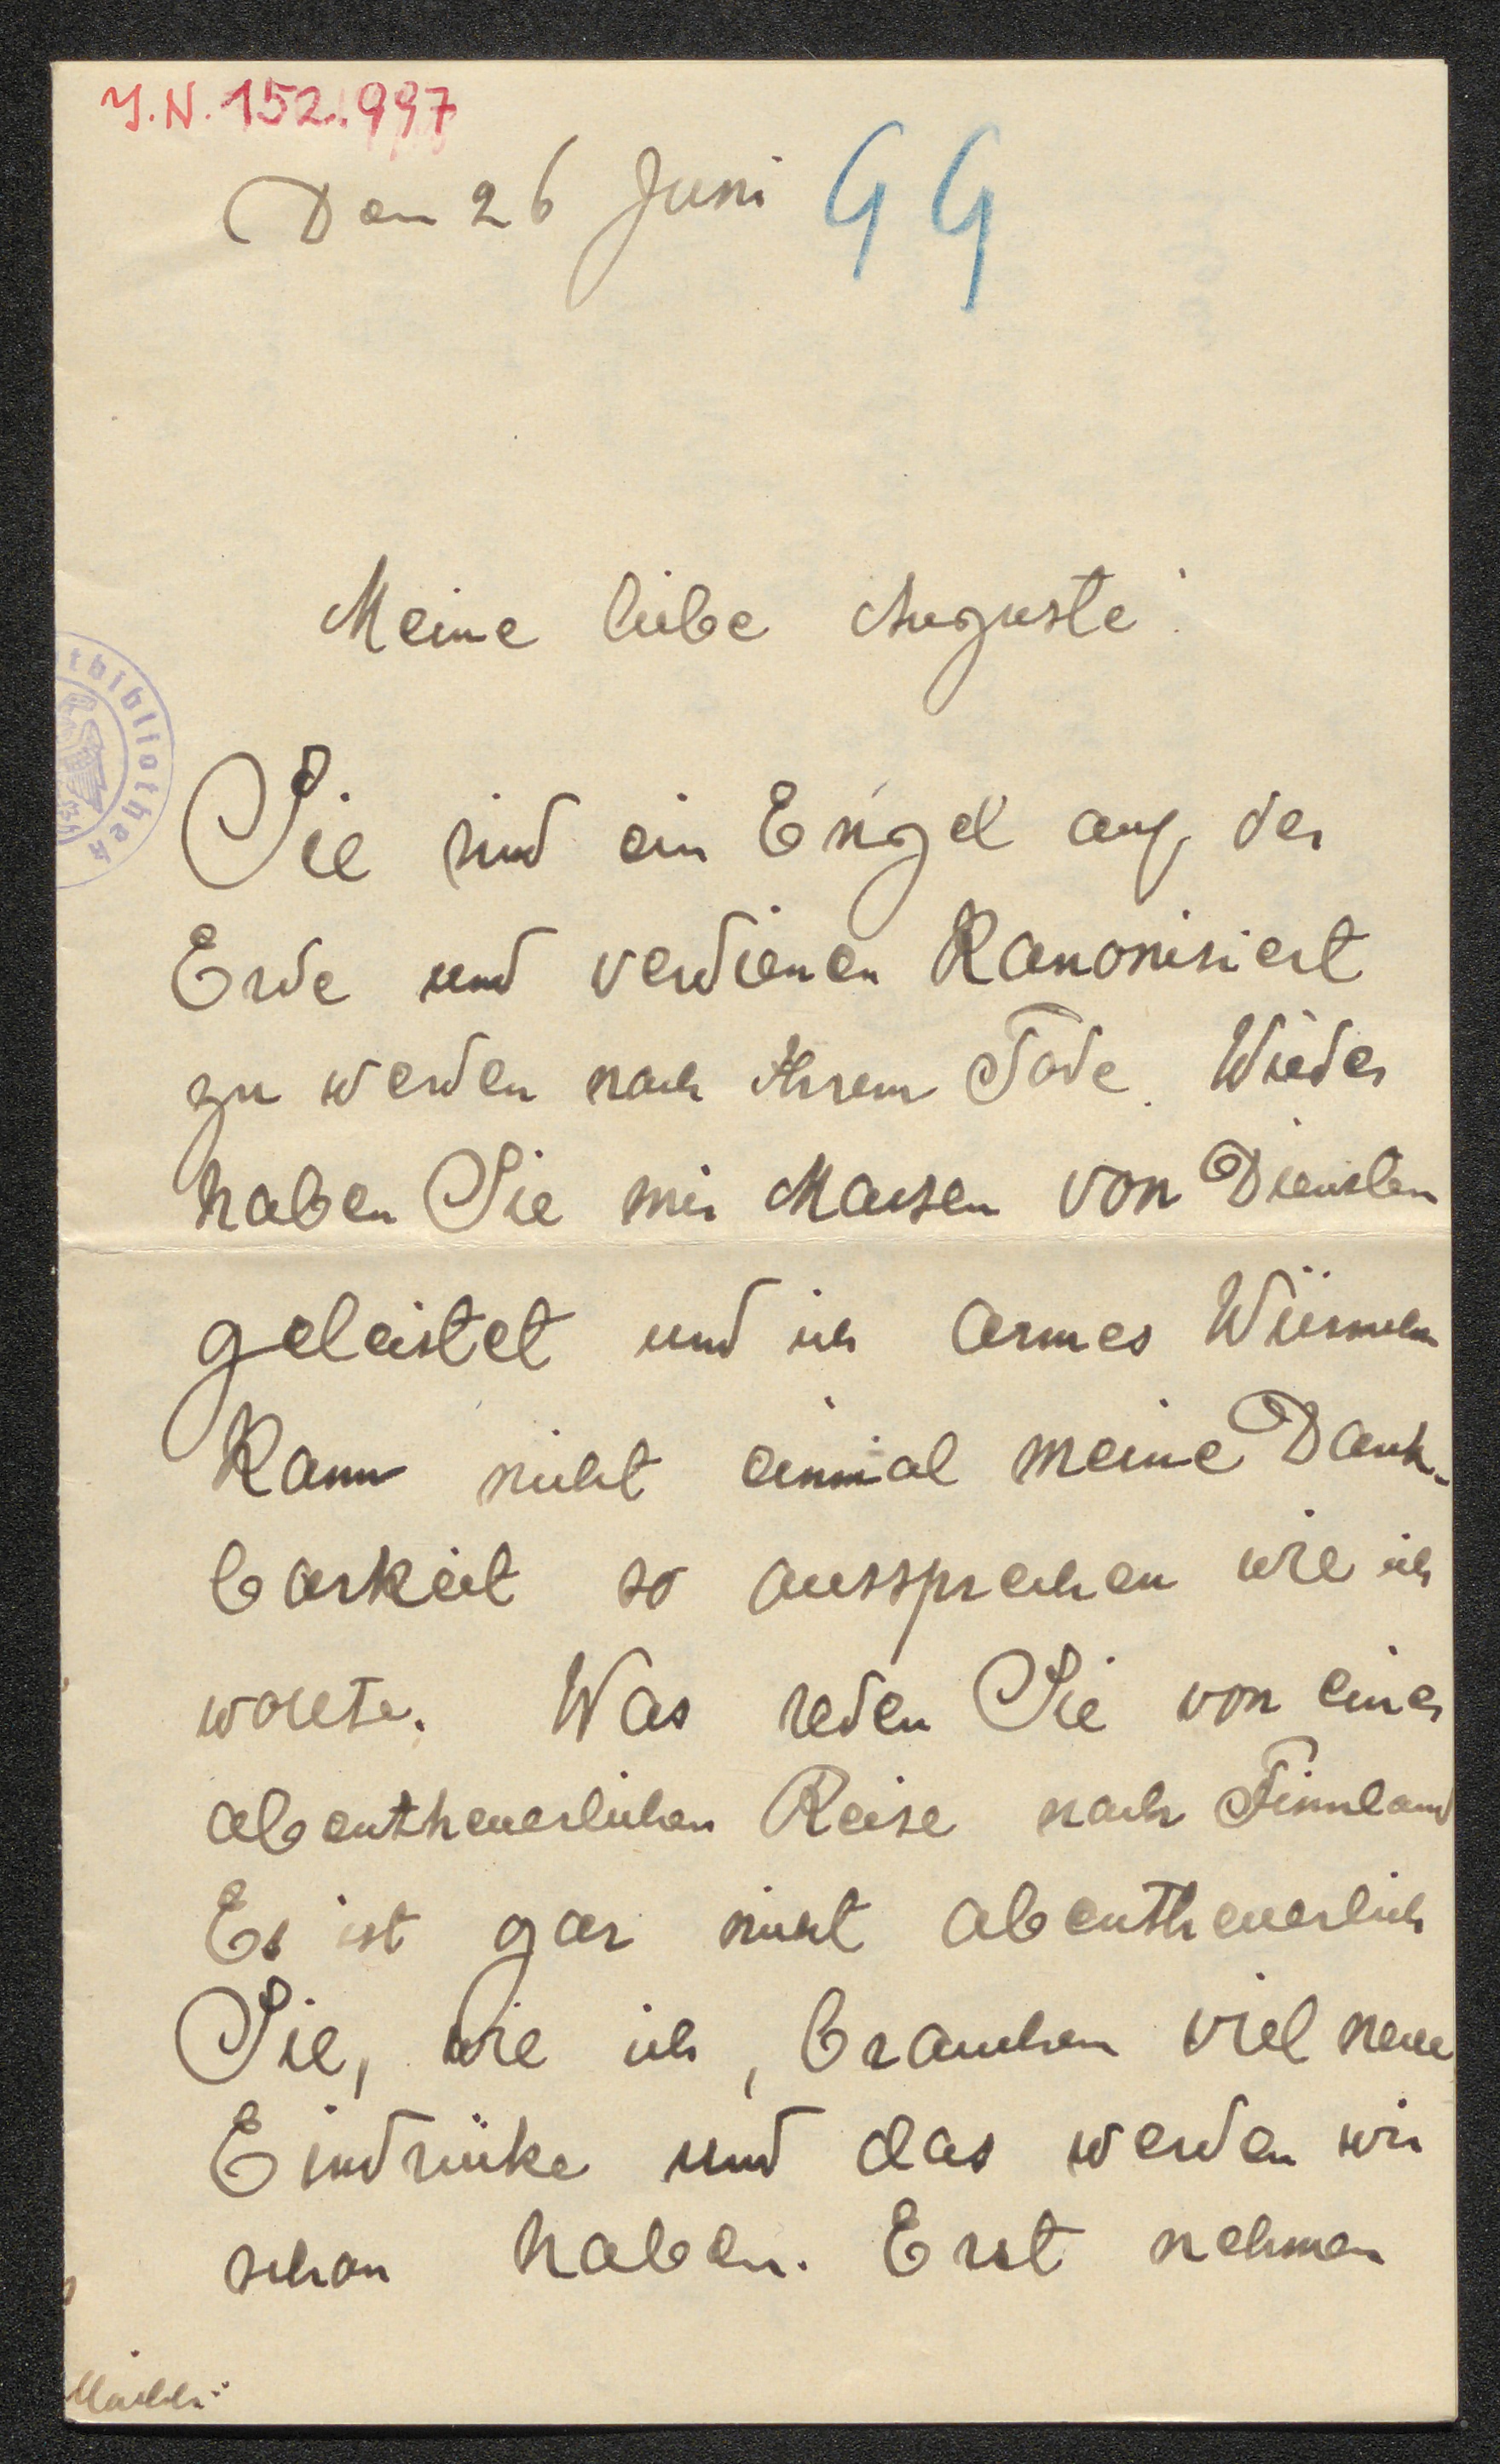 J.N. 152.997
Den 26 Juni 99
Meine liebe Auguste!
thibliothek
Sie sind ein Engel auf der
Erde und verdienen Kanonisiert
zu werden nach Ihrem Tode. Wieder
haben Sie mir Massen von Diensten
geleistet und ich armes Würmchen
Kann nicht einmal meine Dank-
barkeit so aussprechen wie ich
wollte. Was reden Sie von einer
abentheuerlichen Reise nach Finnland
Es ist gar nicht abentheuerlich
Sie, wie ich, brauchen viel neue
Eindrücke und das werden wir
schon haben. Erst nehmen